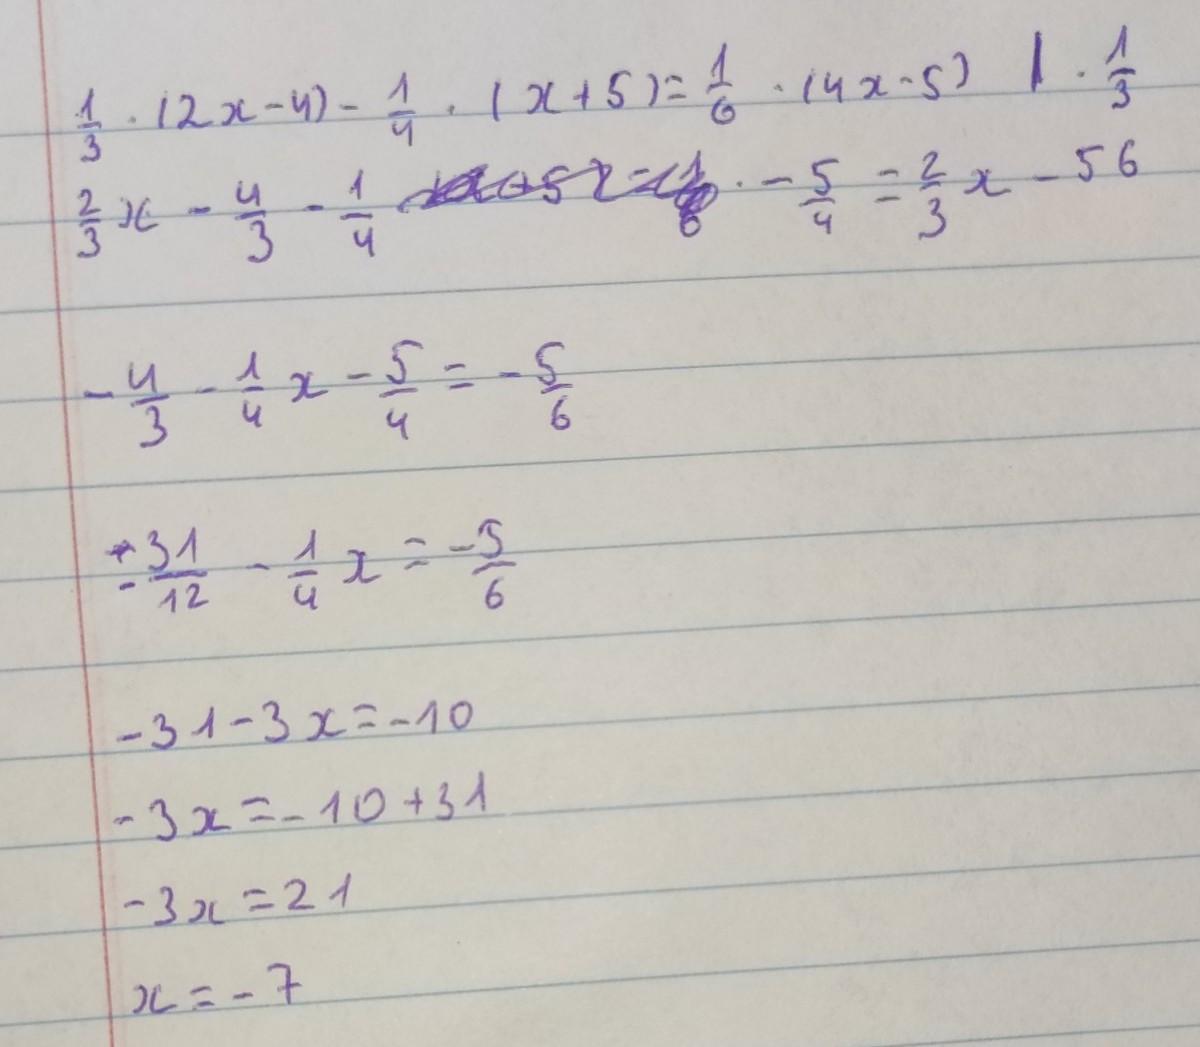 1/3 · (2x-4) - 1/4 · (x+5) = 1/6 · (4x-5) | · 1/3
2/3 x - 4/3 - 1/4 · - 5/4 = 2/3 x - 56
- 4/3 - 1/4 x - 5/4 = - 5/6
- 31/12 - 1/4 x = -5/6
-31-3x=-10
-3x=-10+31
-3x=21
x=-7